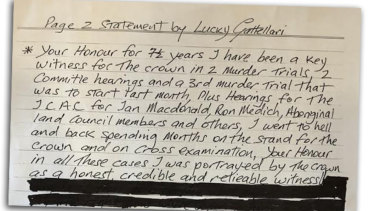 Page 2 Statement by Lucky Gattellari
* Your Honour for 7½ years I have been a key
witness for the crown in 2 murder Trials, 2
Committle hearings and a 3rd murder Trial that
was to start last month, Plus Hearings for The
I C A C for Ian Macdonald, Ron Medich, Aboriginal
land council members and others, I went to hell
and back spending months on the stand for the
crown and on cross examination, Your Honour
in all these cases I was portrayed by the crown
as a honest, credible and relieable witness!